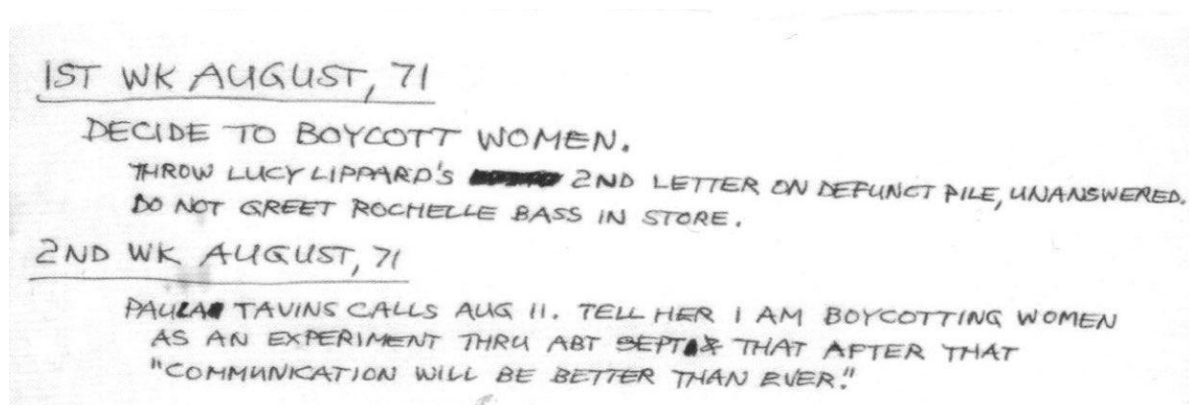 1ST WK AUGUST, 71
DECIDE TO BOYCOTT WOMEN.
THROW LUCY LIPPARD'S 2ND LETTER ON DEFUNCT PILE, UNANSWERED.
DO NOT GREET ROCHELLE BASS IN STORE.
2ND WK AUGUST, 71
PAULA TAVINS CALLS AUG 11. TELL HER I AM BOYCOTTING WOMEN
AS AN EXPERIMENT THRU ABT SEPT & THAT AFTER THAT
"COMMUNICATION WILL BE BETTER THAN EVER."